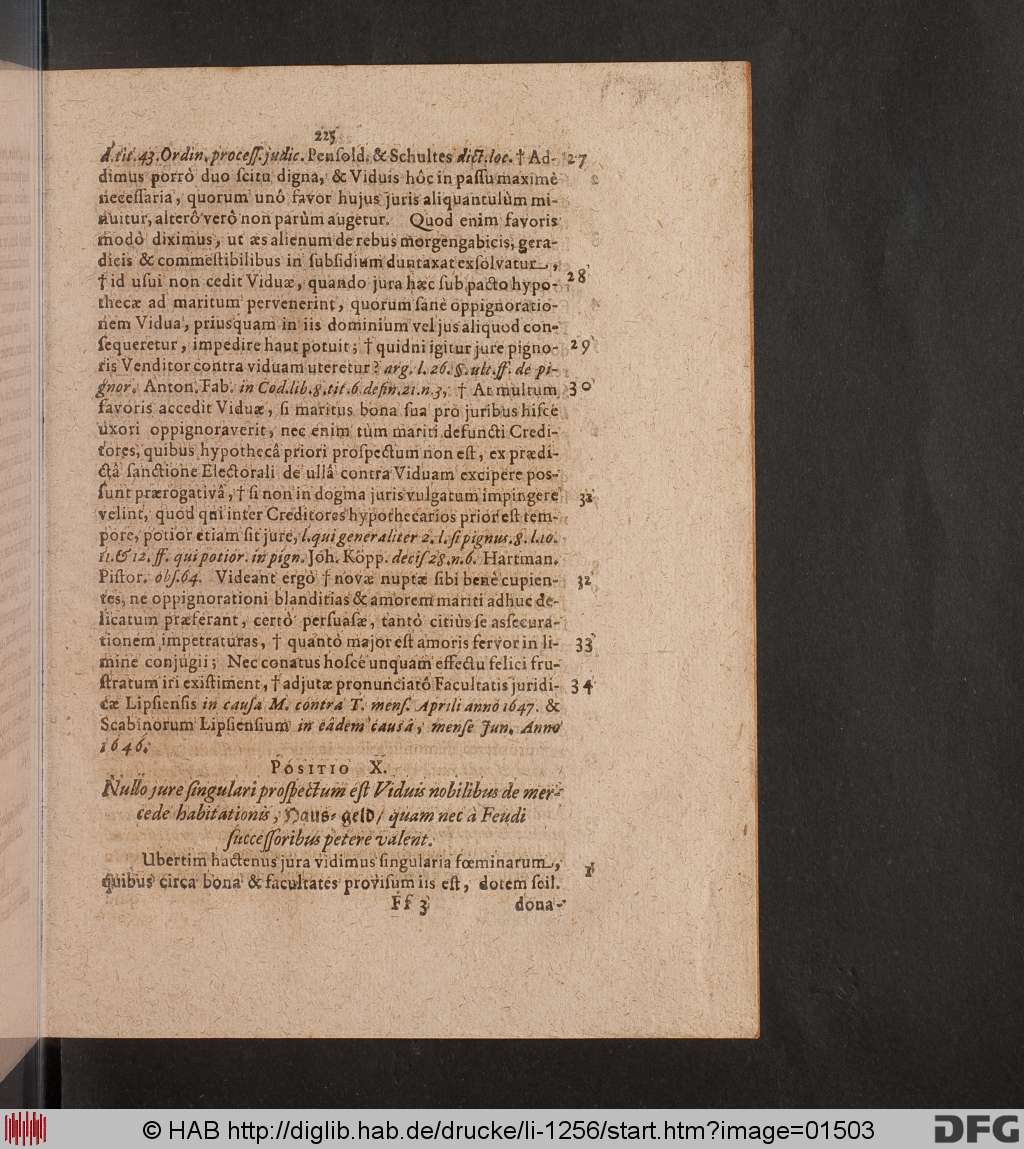 225
d. tit. 43. Ordin. process. judic. Pensold. & Schultes dict. loc. † Ad- 27
dimus porrò duo scitu digna, & Viduis hôc in passu maximè
necessaria, quorum unô favor hujus juris aliquantulùm mi-
nuitur, alterô verô non parùm augetur. Quod enim favoris
modò diximus, ut æs alienum de rebus morgengabicis, gera-
dicis & commestibilibus in subsidium duntaxat exsolvatur,
† id usui non cedit Viduæ, quando jura hæc sub pacto hypo- 28
thecæ ad maritum pervenerint, quorum sanè oppignoratio-
nem Vidua, priusquam in iis dominium vel jus aliquod con-
sequeretur, impedire haut potuit; † quidni igitur jure pigno- 29
ris Venditor contra viduam uteretur? arg. l. 26. §. ult. ff. de pi-
gnor. Anton. Fab. in Cod. lib. 8. tit. 6. defin. 21. n. 3, † At multum 30
favoris accedit Viduæ, si maritus bona sua pro juribus hisce
uxori oppignoraverit, nec enim tùm mariti defuncti Credi-
tores, quibus hypothecâ priori prospectum non est, ex prædi-
ctâ sanctione Electorali de ullâ contra Viduam excipere pos-
sunt prærogativâ, † si non in dogma juris vulgatum impingere 31
velint, quod qui inter Creditores hypothecarios prior est tem-
pore, potior etiam sit jure, l. qui generaliter 2. l. si pignus. 8. l. 10.
11. & 12. ff. qui potior. in pign. Joh. Köpp. decis 28. n. 6. Hartman.
Pistor. obs. 64. Videant ergò † novæ nuptæ sibi benè cupien- 32
tes, ne oppignorationi blanditias & amorem mariti adhuc de-
licatum præferant, certò persuasæ, tantò citiùs se assecura-
tionem impetraturas, † quantò major est amoris fervor in li- 33
mine conjugii; Nec conatus hosce unquam effectu felici fru-
stratum iri existiment, † adjutæ pronunciatô Facultatis juridi- 34
cæ Lipsiensis in causa M. contra T. mens. Aprili annô 1647. &
Scabinorum Lipsiensium in eâdem causâ, mense Jun. Anno
1646.
POSITIO X.
Nullo jure singulari prospectum est Viduis nobilibus de mer-
cede habitationis, Haus-geld/ quam nec à Feudi
successoribus petere valent.
Ubertim hactenus jura vidimus singularia fœminarum, 1
quibus circa bona & facultates provisum iis est, dotem scil.
Ff 3 dona-
© HAB http://diglib.hab.de/drucke/li-1256/start.htm?image=01503
DFG